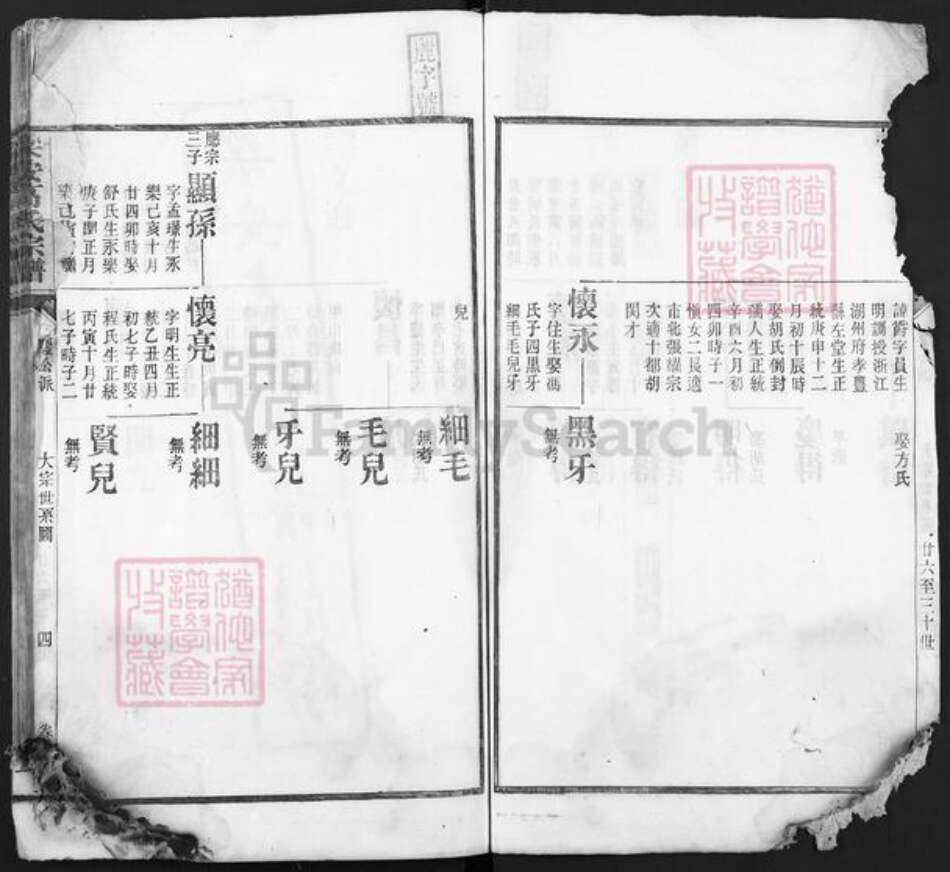 諱爵字貟生
明訓授浙江
湖州府孝豐
縣左堂生正
統庚申十二
月初十辰時
娶胡氏例封
孺人生正統
辛酉六月初
四卯時子一
愼女二長適
市北張羅宗
次適十都胡
閔才
娶方氏
廿六至三十世
懷永
字住生娶馮
氏子四黑牙
細毛毛兒牙
兒
黑牙
無考
細毛
無考
毛兒
無考
牙兒
無考
麗字號
應宗
三子
顯孫
字孟璟生永
樂己亥十月
廿四卯時娶
舒氏生永樂
庚子閏正月
懷亮
字明生生正
統乙丑四月
初七子時娶
程氏生正統
丙寅十月廿
七子時子二
細細
無考
賢兒
無考
氏宗譜
派
大宗世系圖
四
猶他家
譜學會
收藏
猶他家
譜學會
收藏
FamilySearch